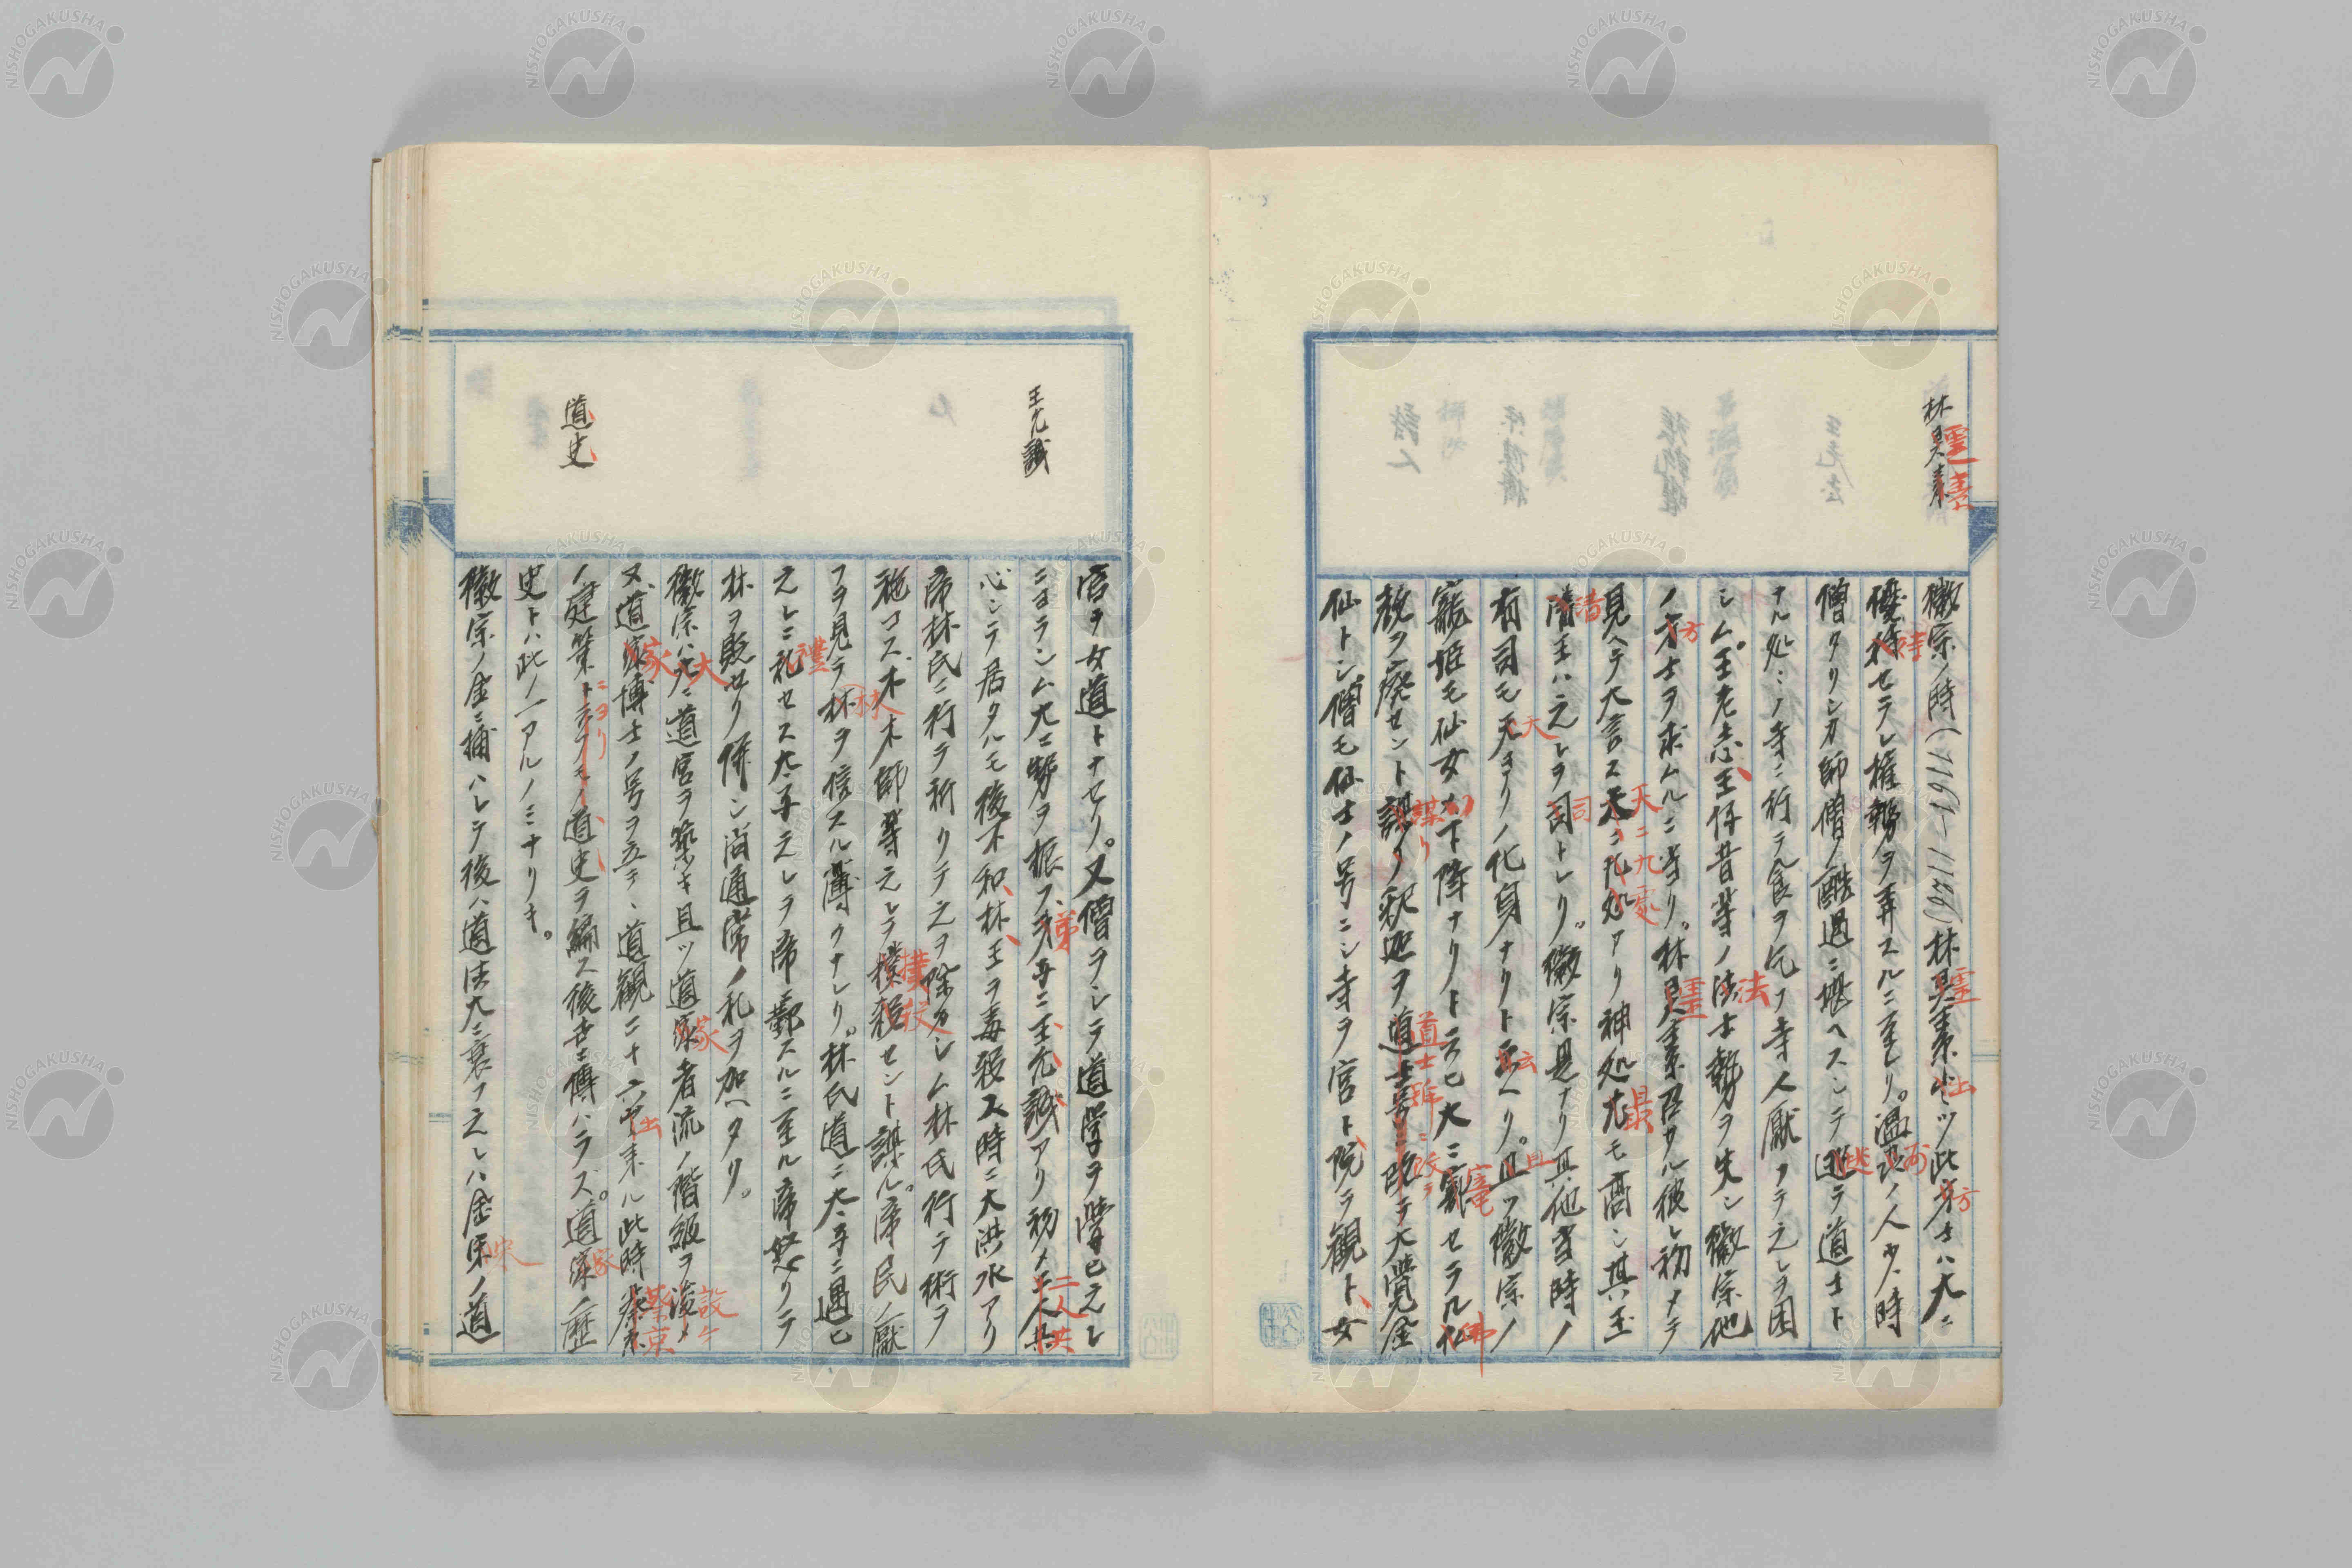 林灵素
靈素
徽宗ノ時(1101-1125)林灵素出ツ此方士ハ大ニ
優待セラレ権勢ヲ弄スルニ至レリ。温州ノ人少時
僧タリシカ師僧ノ酷遇ニ堪ヘスシテ逃テ道士ト
ナル処々ノ寺ニ行テ食ヲ乞フ寺人厭フテ之レヲ困
シム。王老志、王仔昔等ノ法士勢ヲ失シ徽宗他
ノ方士ヲ求ムルニ当リ。林灵素召サル彼レ初メテ
見ヘテ大言ス天ニ九処アリ神処尤モ高シ其玉
清王ハ之レヲ司トレリ。徽宗是ナリ其他当時ノ
有司モ天ヨリノ化身ナリト云ヘリ。且ツ徽宗ノ
寵姫モ仙女ノ下降ナリト云ヒ大ニ寵セラル仏
教ヲ廃セント謀リ釈迦ヲ道士号ニ改テ大覚金
仙トシ僧モ仙士ノ号ニシ寺ヲ宮ト院ヲ観ト、女
王允誠
道史
宮ヲ女道トナセリ。又僧ヲシテ道学ヲ学ヒ之レ
ニヨラシム大ニ勢ヲ振フ、弟子ニ王允誠アリ初メ二人共
心シテ居タルモ後不和、林、王ヲ毒殺ス時ニ大洪水アリ
帝林氏ニ行テ祈リテ之ヲ除カシム林氏行テ術ヲ
施コス
フヲ見テ林ヲ信スル薄クナレリ。林氏道ニ太子ニ遇ヒ
之レニ礼セス太子之レヲ帝ニ鄣スルニ至ル帝怒リテ
林ヲ貶セリ併シ尚通常ノ礼ヲ加ヘタリ。
徽宗ハ大ニ道宮ヲ築キ且ツ道家者流ノ階級ヲ設ケ
又道家博士ノ号ヲ立テ、道観二十六出来ル此時蔡京
ノ建策ニヨリ道史ヲ編ス後世ニ傳ハラズ。道家ノ歴
史トハ此ノ一アルノミナリキ。
徽宗ノ金ニ捕ハレテ後ハ道法大ニ衰フ之レハ金宋ノ道